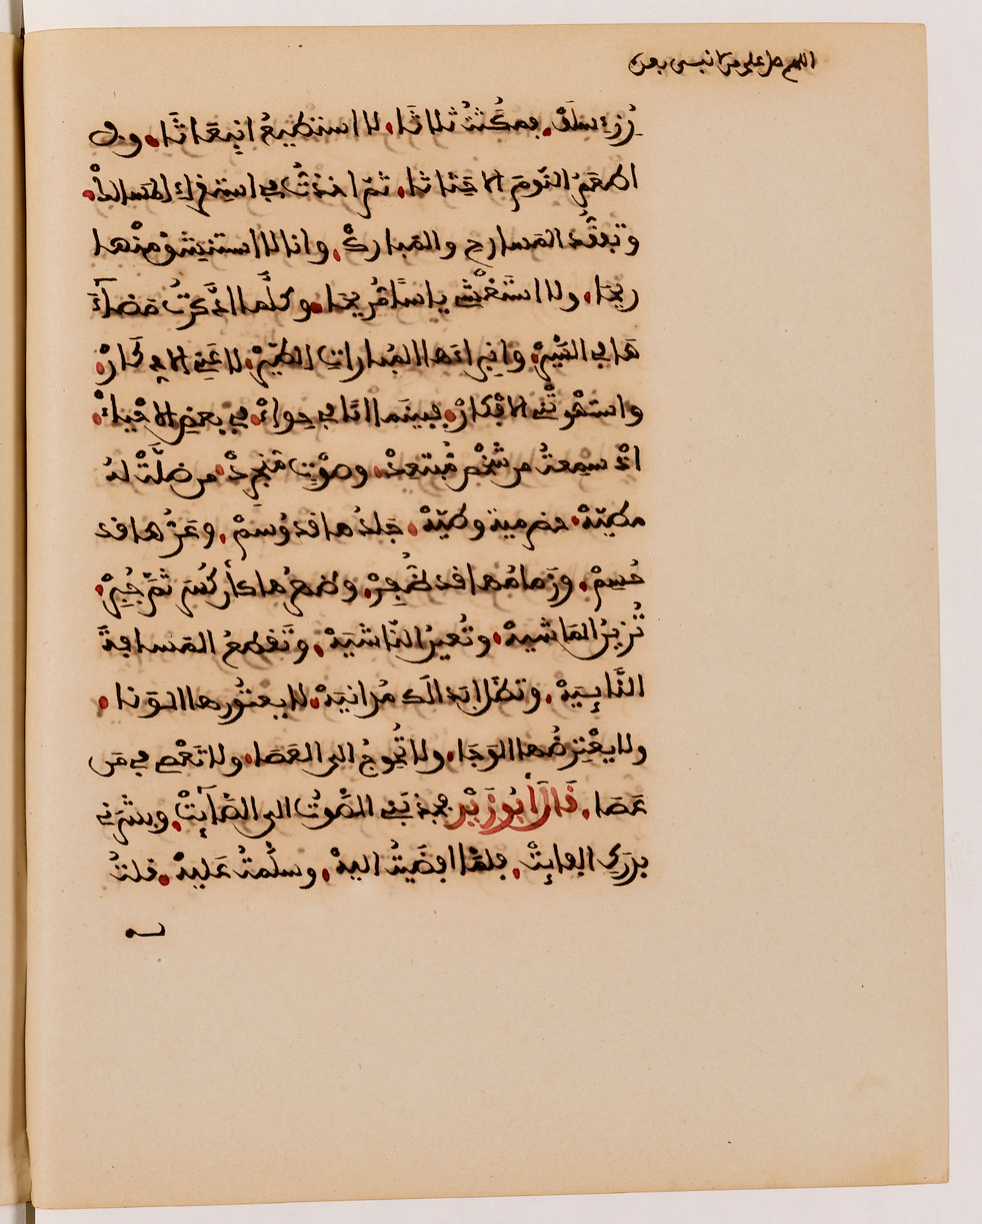 اللهم صل على من لا نبي بعده
رُزِء سلَفَ، فمكَثتُ ثلاثًا، لا استطيعُ انبِعَاثًا، ولا
اطعَمُ النّومَ الا حَثاثا، ثمّ اخذتُ في استِقراءِ المَسالكْ،
وتفقّد المَسارح والمَباركْ، وانا لا استنشق منْها
ريحَا، ولا استَغْشي ياسًا مُريحَا، وكلّما ادّكرتُ مَضآءَ
هَا في السّيرْ، وانبراءَها لمُباراتِ الطّيرْ، لاعَنِي الاِدّكَارْ،
واستهْوتْني الافْكَارْ، فبينما انا في حِواءْ، في بعضِ الاحْياءْ،
اذْ سمِعتُ من شخْص مُبتعدْ، وصوْت مُنجرِدْ، من ضلّتْ لهُ
مطيّةْ، حضرمية وطيّةْ، جلدُها قد وُسمْ، وعرّها قد
حُسِمْ، وزمامُها قد ضُفِرْ، وظهرُها كأن كُسر ثمّ جُبِرْ،
تُزينُ الماشيةْ، وتُعينُ النّاشيَةْ، وتَقطعُ المَسافةَ
النَّايِيَةْ، وتظلّ ابدا لك مُدانيَةْ، لا يعتَوِرُها الوَنا،
ولا يعْتِرضُها الوَجَا، ولا تُحْوجُ الى العَصَا، ولا تَعْصِي في من
عَصَا، قَالَ أبُو زَيْد فجذبَني الصّوتُ الى الصَّآيِتْ، وبشّرَني
بدَرَكِ الفايِتْ، فلمّا افضَيتُ اليهْ، وسلّمتُ عَليهْ، قلتُ
لـه